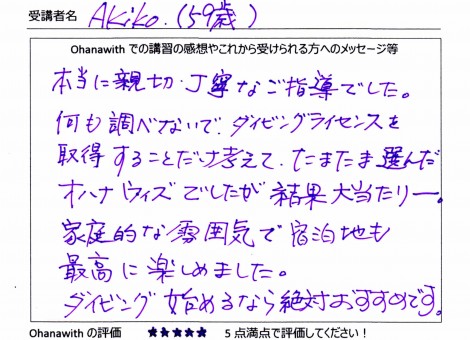 受講者名 Akiko.(59歳)
Ohanawith での講習の感想やこれから受けられる方へのメッセージ等
本当に親切・丁寧なご指導でした。
何も調べないで、ダイビングライセンスを
取得することだけ考えて、たまたま選んだ
オハナウィズでしたが結果大当たりー。
家庭的な雰囲気で宿泊地も
最高に楽しめました。
ダイビング始めるなら絶対おすすめです。
Ohanawith の評価 ★★★★★ 5 点満点で評価してください!